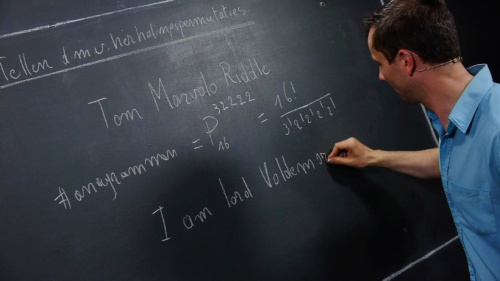 Tellen d.m.v. herhalingspermutaties
Tom Marvolo Riddle
#anagrammen = P 32222 16 = 16! / 3!2!2!2!2!
I am lord Voldemor